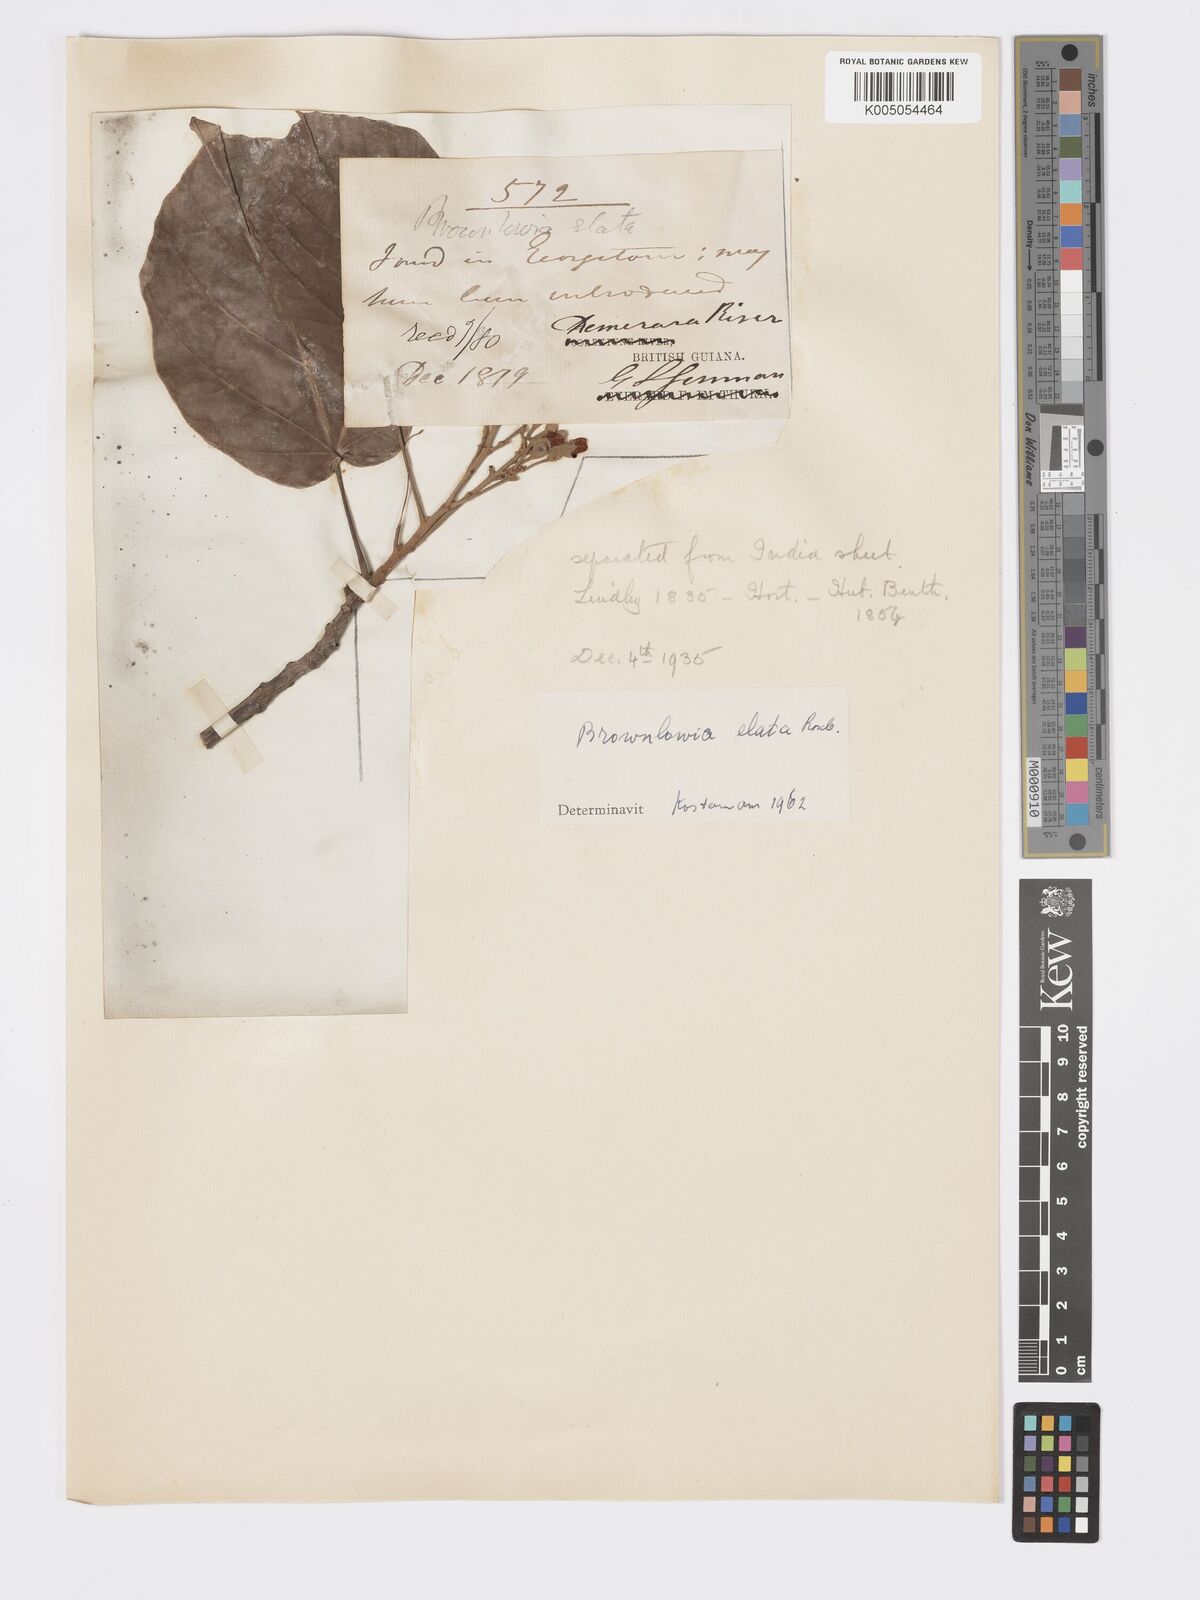 ROYAL BOTANIC GARDENS KEW
K005054464
572
Brownlowia elata
Found in Georgetown; may
have been introduced
recd 9/80
Demerara River
BRITISH GUIANA.
Dec 1879
G S Jenman
separated from India sheet.
Lindley 1835 – Hort. – Hb. Benth.
1854
Dec. 4th 1935
Brownlowia elata Roxb.
Determinavit Kostermans 1962
inches
Density
Don Williams
M000910
centimeters
Kew
Royal Botanic Gardens
0 1 2 3 4 5 6 7 8 9 10
cm
copyright reserved